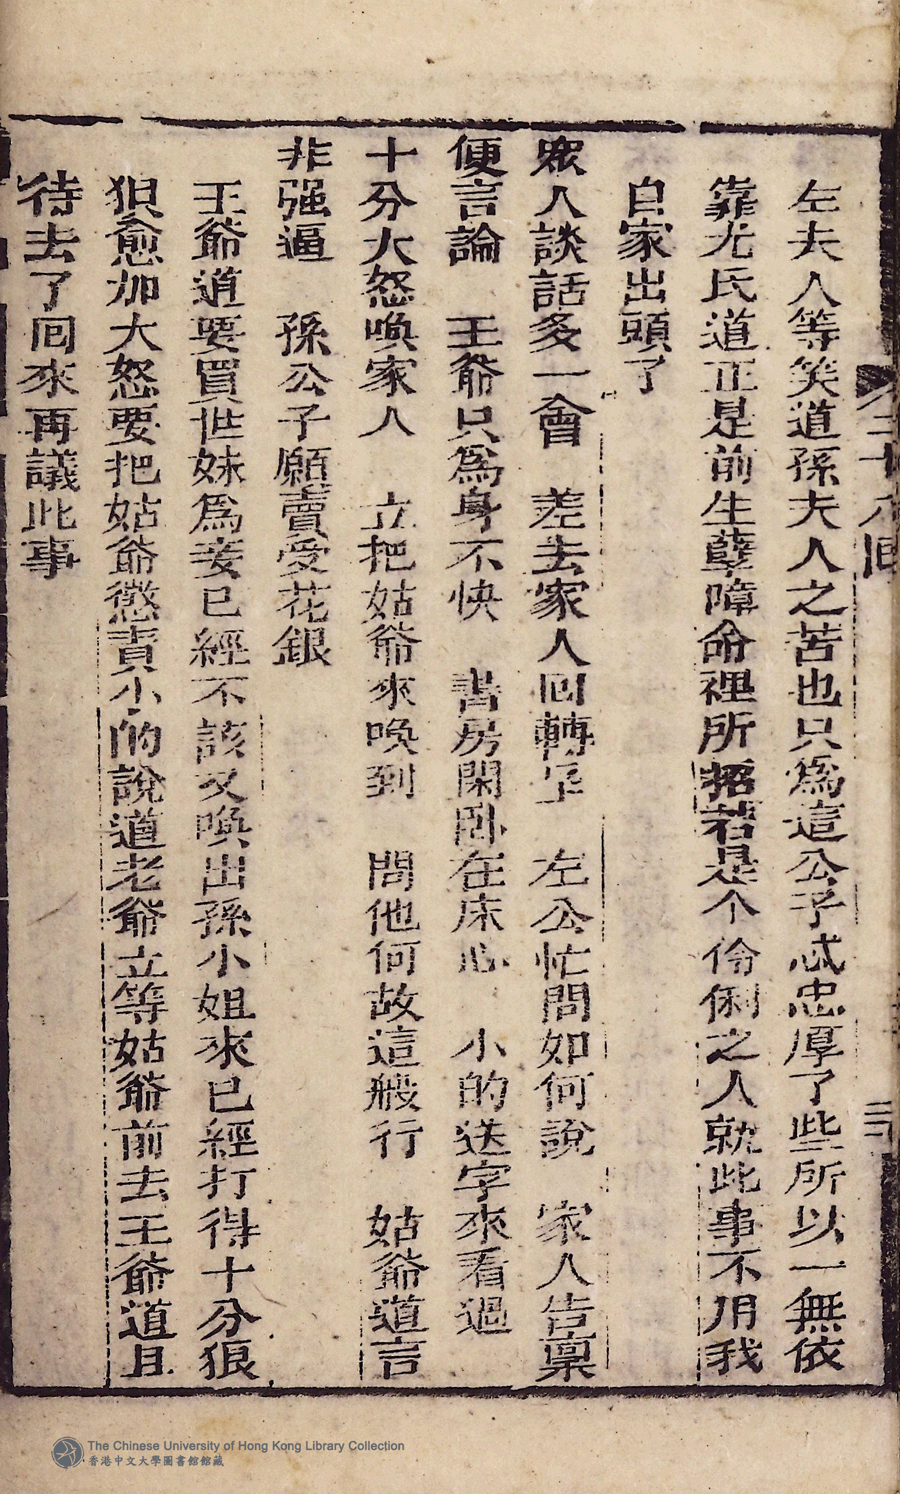 左夫人等笑道孫夫人之苦也只爲這公子忒忠厚了些所以一無依
靠尤氏道正是前生孽障命裡所招若是个伶俐之人就此事不用我
自家出頭了
眾人談話多一會　差去家人回轉至　左公忙問如何說　家人告禀
便言論　王爺只爲身不快　書房閑臥在床心　小的送字來看過
十分大怒喚家人　立把姑爺來喚到　問他何故這般行　姑爺道言
非强逼　孫公子願賣受花銀
王爺道要買世妹爲妾已經不該又喚出孫小姐來已經打得十分狠
狽愈加大怒要把姑爺懲責小的說道老爺立等姑爺前去王爺道且
待去了回來再議此事
二十八回
The Chinese University of Hong Kong Library Collection
香港中文大學圖書館館藏